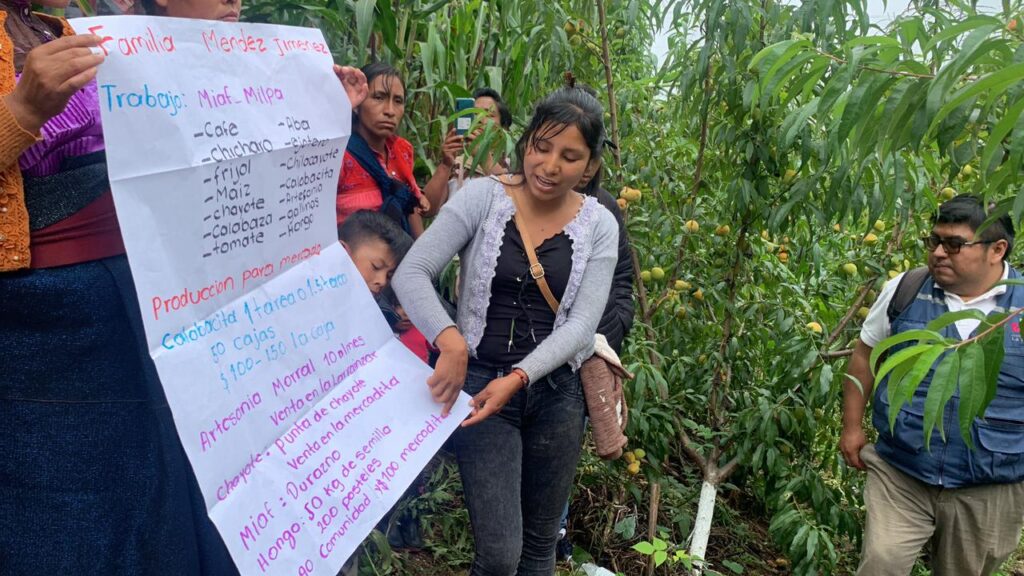 Familia Mendez Jimenez
Trabajo: Miaf-Milpa
-Cafe
-chicharo
-frijol
-Maiz
-chayote
-Calabaza
-tomate
-Aba
-Chilacayote
-calabacita
-Artesania
-galinas
-Hongo
Produccion para mercado
Calabacita 1 tarea o 1.5 tarea
50 cajas
$100-150 la caja
Artesonia Morral 10 mlnes
venta en la Larrainzar
chayote: Punta de chayote
venta en la mercadita
Miaf: Durazno
Hongo: 50 kg de semilla
200 posteles
90 Comunidad y $100 mercadito